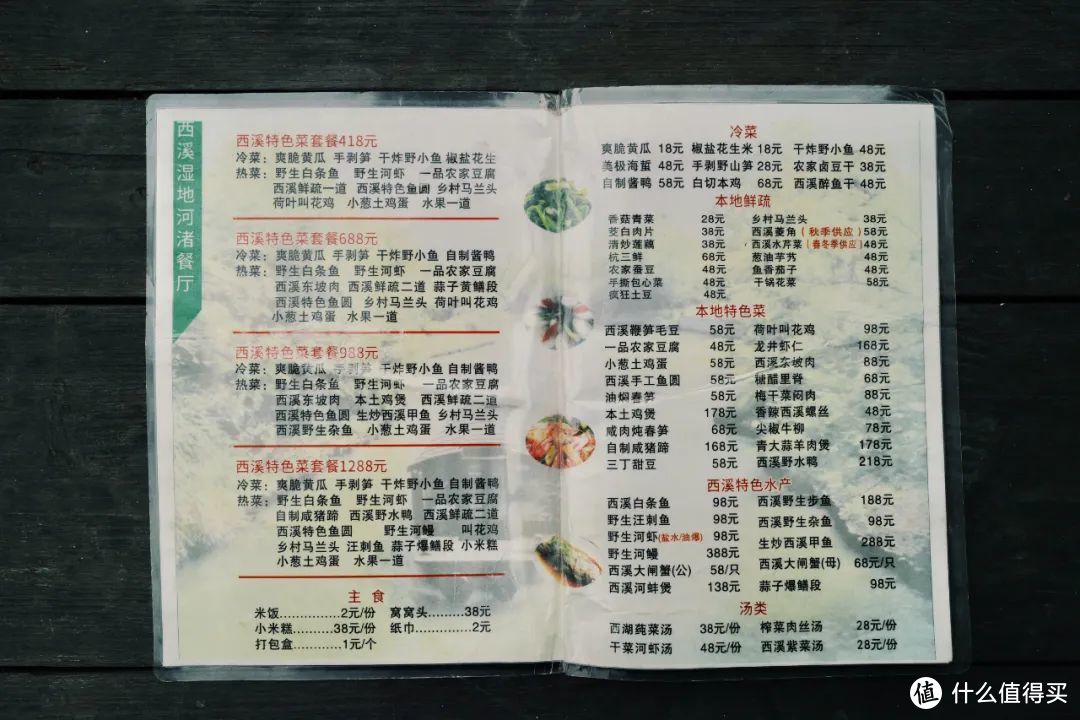 西溪湿地河渚餐厅
西溪特色菜套餐418元
冷菜：爽脆黄瓜 手剥笋 干炸野小鱼 椒盐花生
热菜：野生白条鱼 野生河虾 一品农家豆腐
西溪鲜疏一道 西溪特色鱼圆 乡村马兰头
荷叶叫花鸡 小葱土鸡蛋 水果一道
西溪特色菜套餐688元
冷菜：爽脆黄瓜 手剥笋 干炸野小鱼 自制酱鸭
热菜：野生白条鱼 野生河虾 一品农家豆腐
西溪东坡肉 西溪鲜疏二道 蒜子黄鳝段
西溪特色鱼圆 乡村马兰头 荷叶叫花鸡
小葱土鸡蛋 水果一道
西溪特色菜套餐988元
冷菜：爽脆黄瓜 手剥笋 干炸野小鱼 自制酱鸭
热菜：野生白条鱼 野生河虾 一品农家豆腐
西溪东坡肉 本土鸡煲 西溪鲜疏二道
西溪特色鱼圆 生炒西溪甲鱼 乡村马兰头
西溪野生杂鱼 小葱土鸡蛋 水果一道
西溪特色菜套餐1288元
冷菜：爽脆黄瓜 手剥笋 干炸野小鱼 自制酱鸭
热菜：野生白条鱼 野生河虾 一品农家豆腐
自制咸猪蹄 西溪野水鸭 西溪鲜疏二道
西溪特色鱼圆 野生河鳗 叫花鸡
乡村马兰头 汪刺鱼 蒜子爆鳝段 小米糕
小葱土鸡蛋 水果一道
主食
米饭...............2元/份 窝窝头.........38元
小米糕.........38元/份 纸巾..............2元
打包盒............1元/个
冷菜
爽脆黄瓜 18元 椒盐花生米 18元 干炸野小鱼 48元
美极海蜇 48元 手剥野山笋 28元 农家卤豆干 38元
自制酱鸭 58元 白切本鸡 68元 西溪醉鱼干 48元
本地鲜疏
香菇青菜 28元 乡村马兰头 38元
茭白肉片 38元 西溪菱角（秋季供应）58元
清炒莲藕 38元 西溪水芹菜（春冬季供应）48元
杭三鲜 68元 葱油芋艿 48元
农家蚕豆 48元 鱼香茄子 48元
手撕包心菜 48元 干锅花菜 58元
疯狂土豆 48元
本地特色菜
西溪鞭笋毛豆 58元 荷叶叫花鸡 98元
一品农家豆腐 48元 龙井虾仁 168元
小葱土鸡蛋 58元 西溪东坡肉 88元
西溪手工鱼圆 58元 糖醋里脊 68元
油焖春笋 58元 梅干菜闷肉 88元
本土鸡煲 178元 香辣西溪螺丝 48元
咸肉炖春笋 68元 尖椒牛柳 78元
自制咸猪蹄 168元 青大蒜羊肉煲 178元
三丁甜豆 58元 西溪野水鸭 218元
西溪特色水产
西溪白条鱼 98元 西溪野生步鱼 188元
野生汪刺鱼 98元 西溪野生杂鱼 98元
野生河虾(盐水/油爆) 98元 生炒西溪甲鱼 288元
野生河鳗 388元 西溪大闸蟹(母) 68元/只
西溪大闸蟹(公) 58/只 蒜子爆鳝段 98元
西溪河蚌煲 138元
汤类
西湖莼菜汤 38元/份 榨菜肉丝汤 28元/份
干菜河虾汤 48元/份 西溪紫菜汤 28元/份
值 什么值得买